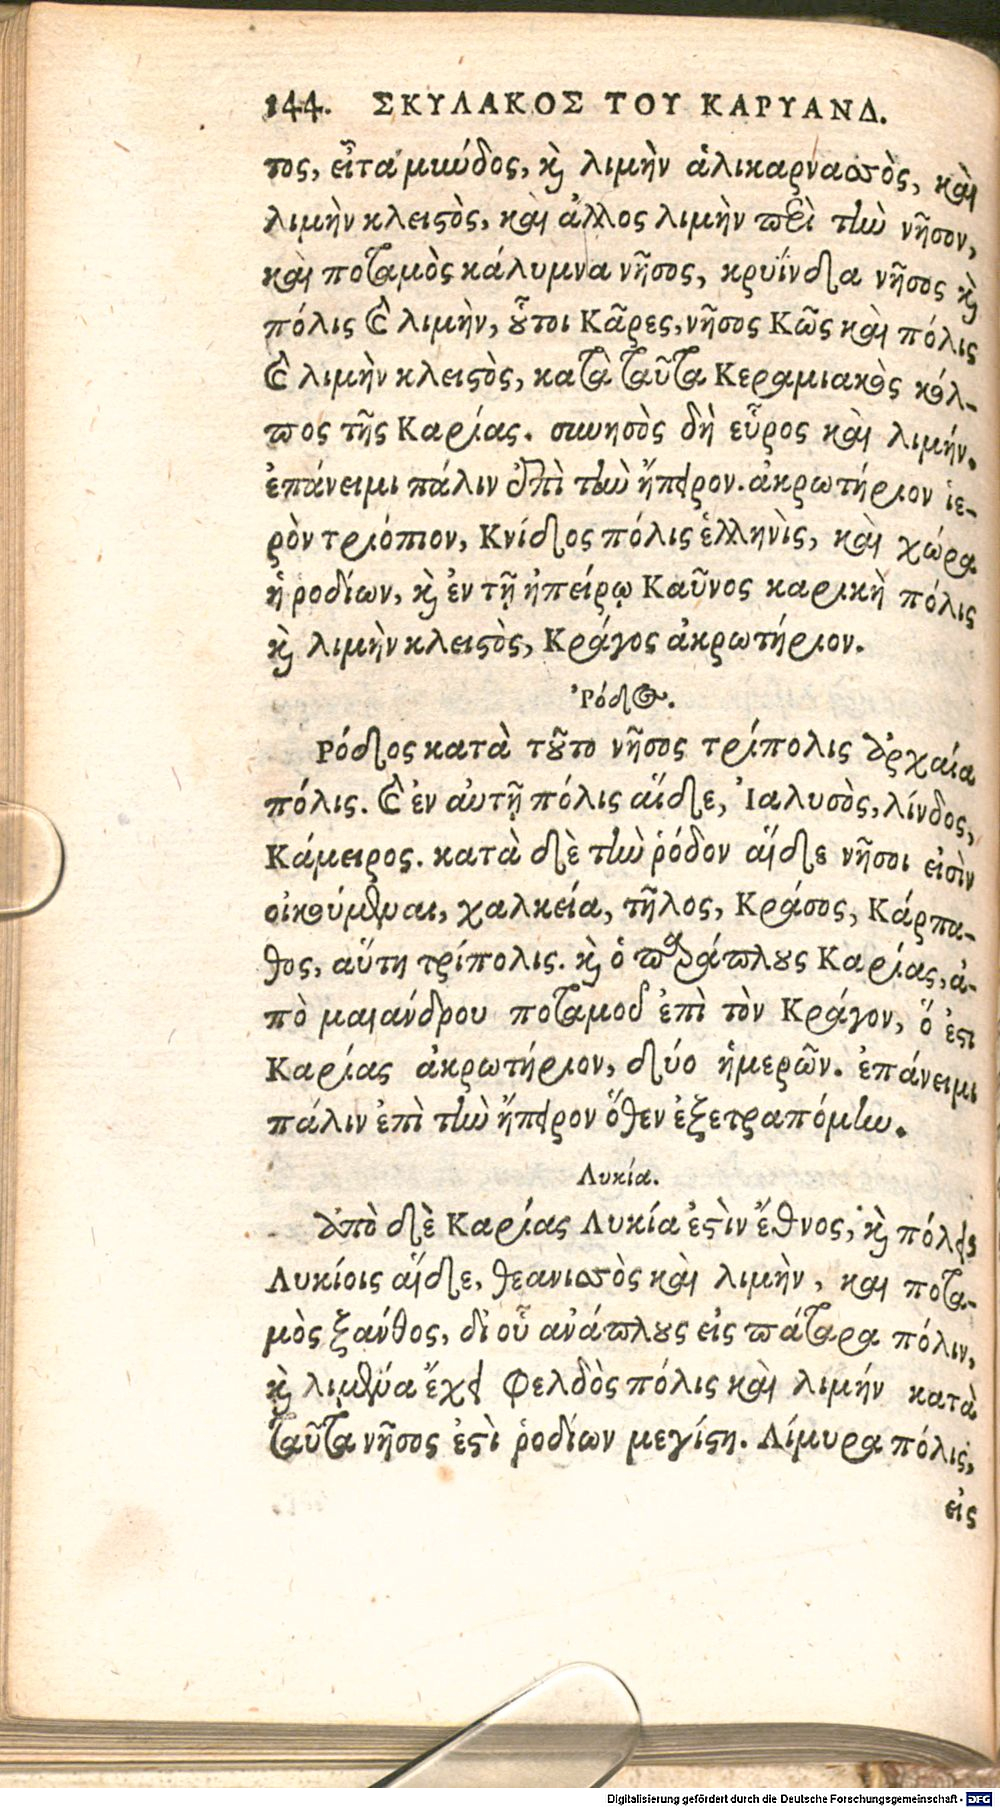 144. ΣΚΥΛΑΚΟΣ ΤΟΥ ΚΑΡΥΑΝΔ.
τος, εἶτα μωύδος, καὶ λιμὴν ἁλικαρνασσὸς, καὶ
λιμὴν κλειστὸς, καὶ ἄλλος λιμὴν περὶ τὴν νῆσον,
καὶ ποταμὸς κάλυμνα νῆσος, κρυΐνδα νῆσος καὶ
πόλις καὶ λιμὴν, οὗτοι Κᾶρες, νῆσος Κῶς καὶ πόλις
καὶ λιμὴν κλειστὸς, κατὰ ταῦτα Κεραμιακὸς κόλ-
πος τῆς Καρίας. συνηστὸς δὴ εὖρος καὶ λιμήν.
ἐπάνειμι πάλιν ἐπὶ τὴν ἤπειρον. ἀκρωτήριον ἱε-
ρὸν τριόπιον, Κνίδος πόλις ἑλληνὶς, καὶ χώρα
ἡ ροδίων, καὶ ἐν τῇ ἠπείρῳ Καῦνος καρικὴ πόλις
καὶ λιμὴν κλειστὸς, Κράγος ἀκρωτήριον.
Ῥόδος.
Ρόδος κατὰ τοῦτο νῆσος τρίπολις ἀρχαία
πόλις. καὶ ἐν αὐτῇ πόλις αἵδε, Ἰαλυσὸς, λίνδος,
Κάμειρος. κατὰ δὲ τὴν ῥόδον αἵδε νῆσοι εἰσὶν
οἰκούμεναι, χαλκεία, τῆλος, Κράσος, Κάρπα-
θος, αὕτη τρίπολις. καὶ ὁ παράπλους Καρίας, ἀ-
πὸ μαιάνδρου ποταμοῦ ἐπὶ τὸν Κράγον, ὅ ἐστι
Καρίας ἀκρωτήριον, δύο ἡμερῶν. ἐπάνειμι
πάλιν ἐπὶ τὴν ἤπειρον ὅθεν ἐξετραπόμην.
Λυκία.
Ἀπὸ δὲ Καρίας Λυκία ἐστὶν ἔθνος, καὶ πόλεις
Λυκίοις αἵδε, θεανισσὸς καὶ λιμὴν, και ποτα-
μὸς ξανθος, δι οὗ ἀνάπλους εἰς πάταρα πόλιν,
καὶ λιμένα ἔχει Φελδὸς πόλις καὶ λιμήν κατὰ
ταῦτα νῆσος ἐστὶ ῥοδίων μεγίστη. Λίμυρα πόλις,
εἰς
Digitalisierung gefördert durch die Deutsche Forschungsgemeinschaft - DFG